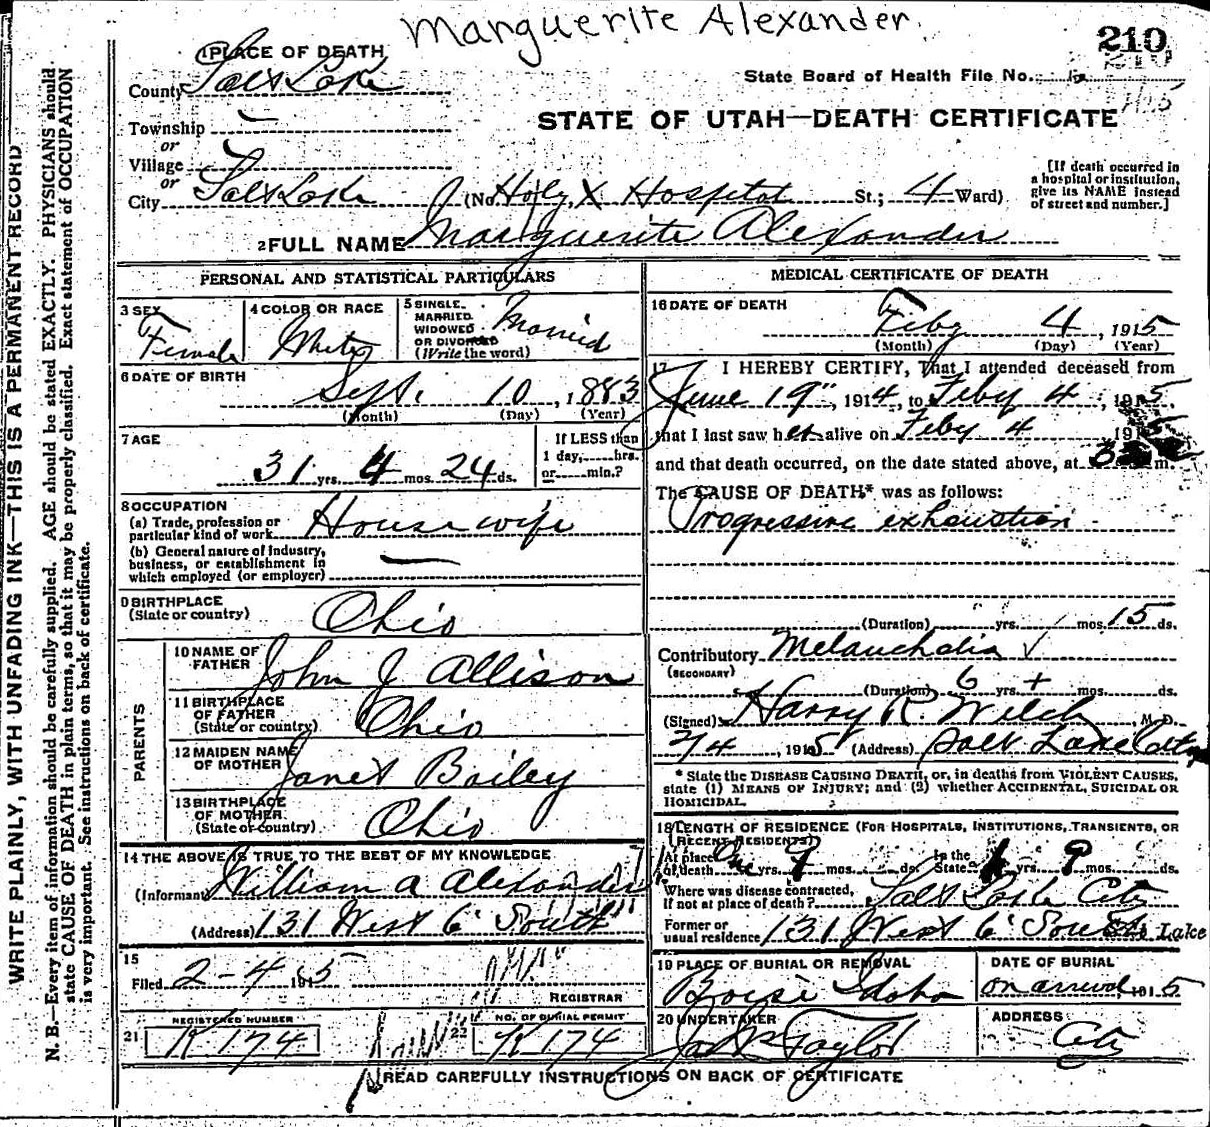 Marguerite Alexander
210
210
State Board of Health File No.
1 PLACE OF DEATH
County Salt Lake
STATE OF UTAH—DEATH CERTIFICATE
Township
or
Village
or
City Salt Lake (No. Holy X Hospital St.; 4 Ward)
[If death occurred in
a hospital or institution,
give its NAME instead
of street and number.]
2 FULL NAME Marguerite Alexander
PERSONAL AND STATISTICAL PARTICULARS
3 SEX
Female
4 COLOR OR RACE
White
5 SINGLE.
MARRIED.
WIDOWED
OR DIVORCED
(Write the word)
Married
6 DATE OF BIRTH
Sept. 10, 1883
(Month) (Day) (Year)
7 AGE
31 yrs. 4 mos. 24 ds.
If LESS than
1 day, hrs.
or min.?
8 OCCUPATION
(a) Trade, profession or
particular kind of work Housewife
(b) General nature of industry,
business, or establishment in
which employed (or employer)
9 BIRTHPLACE
(State or country) Ohio
PARENTS
10 NAME OF
FATHER John J Allison
11 BIRTHPLACE
OF FATHER
(State or country) Ohio
12 MAIDEN NAME
OF MOTHER Janet Bailey
13 BIRTHPLACE
OF MOTHER
(State or country) Ohio
14 THE ABOVE IS TRUE TO THE BEST OF MY KNOWLEDGE
(Informant) William A Alexander
(Address) 131 West 6 South
15
Filed 2-4 1915
REGISTRAR
21 REGISTERED NUMBER
K 174
22 NO. OF BURIAL PERMIT
K 174
MEDICAL CERTIFICATE OF DEATH
16 DATE OF DEATH
Feby 4, 1915
(Month) (Day) (Year)
17 I HEREBY CERTIFY, That I attended deceased from
June 19", 1914, to Feby 4, 1915,
that I last saw her alive on Feby 4 1915
and that death occurred, on the date stated above, at m.
The CAUSE OF DEATH* was as follows:
Progressive exhaustion
(Duration) yrs. mos. 15 ds.
Contributory Melancholia
(SECONDARY)
(Duration) 6 yrs. + mos. ds.
(Signed) Harry R. Welch M. D.
2/4, 1915 (Address) Salt Lake City
* State the DISEASE CAUSING DEATH, or, in deaths from VIOLENT CAUSES,
state (1) MEANS OF INJURY; and (2) whether ACCIDENTAL, SUICIDAL OR
HOMICIDAL.
18 LENGTH OF RESIDENCE (FOR HOSPITALS, INSTITUTIONS, TRANSIENTS, OR
RECENT RESIDENTS)
At place
of death One yrs. 9 mos. ds. In the
State yrs. 9 mos. ds.
Where was disease contracted,
If not at place of death? Salt Lake City
Former or
usual residence 131 West 6 South Lake
19 PLACE OF BURIAL OR REMOVAL
Broise Idaho
DATE OF BURIAL
on arrival, 1915
20 UNDERTAKER
Taylor
ADDRESS
City
READ CAREFULLY INSTRUCTIONS ON BACK OF CERTIFICATE
WRITE PLAINLY, WITH UNFADING INK—THIS IS A PERMANENT RECORD
N. B.—Every item of information should be carefully supplied. AGE should be stated EXACTLY. PHYSICIANS should
state CAUSE OF DEATH in plain terms, so that it may be properly classified. Exact statement of OCCUPATION
is very important. See instructions on back of certificate.